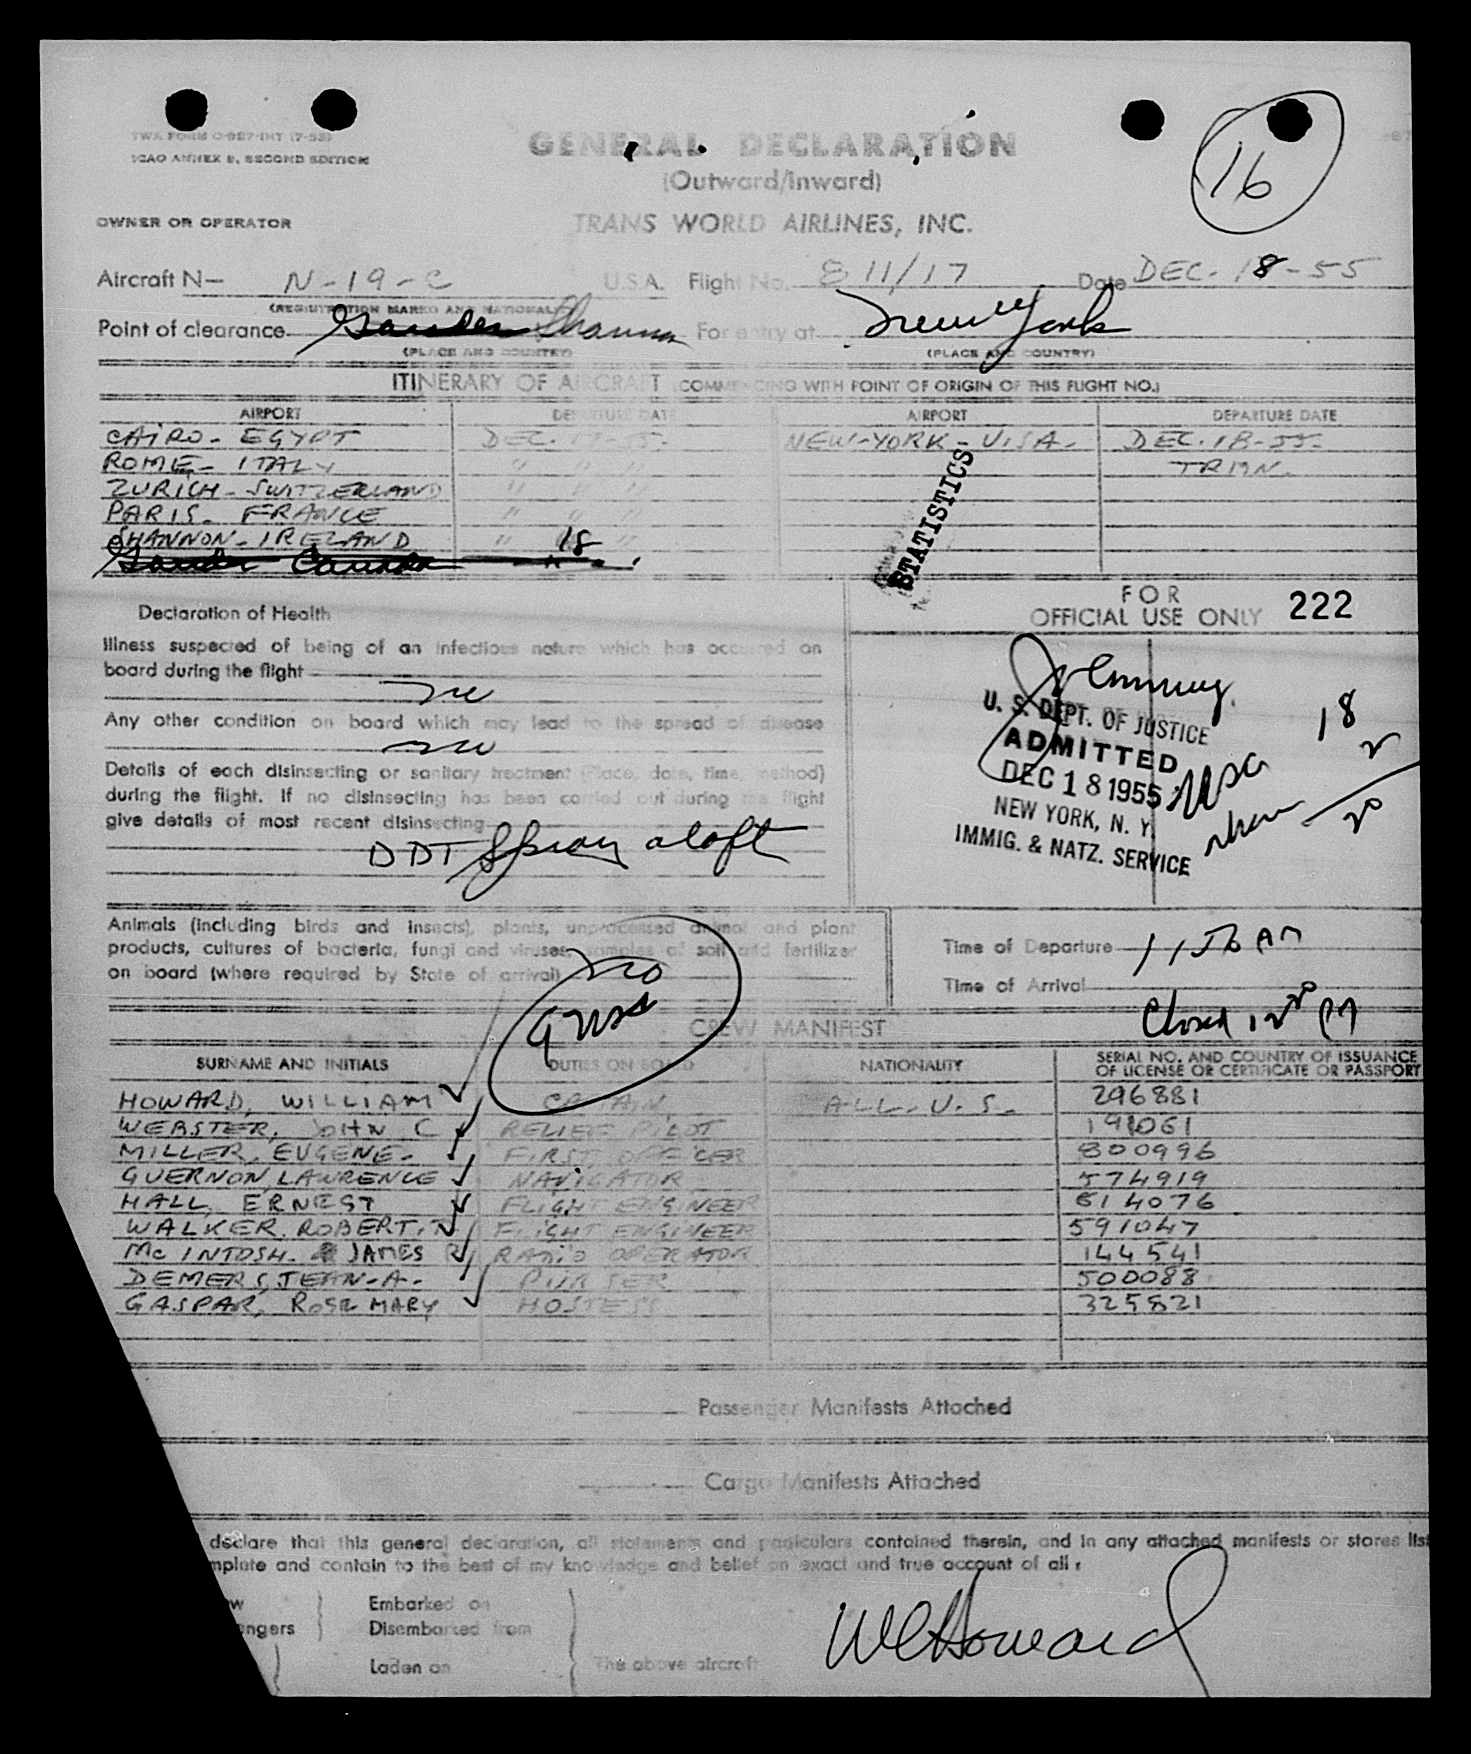 TWA FORM O-927-INT (7-53)
ICAO ANNEX 9, SECOND EDITION
GENERAL DECLARATION
(Outward/Inward)
16
OWNER OR OPERATOR
TRANS WORLD AIRLINES, INC.
Aircraft N— N-19-C U.S.A. Flight No. 811/17 Date DEC. 18-55
(REGISTRATION MARKS AND NATIONALITY)
Point of clearance Gander Shannon For entry at New York
(PLACE AND COUNTRY) (PLACE AND COUNTRY)
ITINERARY OF AIRCRAFT (COMMENCING WITH POINT OF ORIGIN OF THIS FLIGHT NO.)
AIRPORT DEPARTURE DATE AIRPORT DEPARTURE DATE
CAIRO - EGYPT DEC. 17-55. NEW-YORK - U.S.A. DEC. 18-55.
ROME - ITALY " " " TRMN.
ZURICH - SWITZERLAND " " "
PARIS. FRANCE " " "
SHANNON - IRELAND " 18 "
Gander Canada
STATISTICS
Declaration of Health
FOR
OFFICIAL USE ONLY 222
Illness suspected of being of an infectious nature which has occurred on
board during the flight
no
Any other condition on board which may lead to the spread of disease
no
Details of each disinsecting or sanitary treatment (Place, date, time, method)
during the flight. If no disinsecting has been carried out during the flight
give details of most recent disinsecting
DDT Spray aloft
U. S. DEPT. OF JUSTICE
ADMITTED
DEC 18 1955
NEW YORK, N. Y.
IMMIG. & NATZ. SERVICE
18
2
20
Animals (including birds and insects), plants, unprocessed animal and plant
products, cultures of bacteria, fungi and viruses, samples of soil and fertilizer
on board (where required by State of arrival)
no
Time of Departure
Time of Arrival
CREW MANIFEST
SURNAME AND INITIALS DUTIES ON BOARD NATIONALITY SERIAL NO. AND COUNTRY OF ISSUANCE
OF LICENSE OR CERTIFICATE OR PASSPORT
HOWARD, WILLIAM CAPTAIN ALL. U.S. 296881
WEBSTER, JOHN C RELIEF PILOT 191061
MILLER, EUGENE. FIRST OFFICER 800996
GUERNON, LAWRENCE NAVIGATOR 574919
HALL, ERNEST FLIGHT ENGINEER 814076
WALKER, ROBERT, T FLIGHT ENGINEER 591047
Mc INTOSH. JAMES R RADIO OPERATOR 144541
DEMERS, JEAN-A. PURSER 500088
GASPAR, ROSE MARY HOSTESS 325821
Passenger Manifests Attached
Cargo Manifests Attached
declare that this general declaration, all statements and particulars contained therein, and in any attached manifests or stores list
mplete and contain to the best of my knowledge and belief an exact and true account of all
ew Embarked on
ngers Disembarked from
Laden on The above aircraft
W C Howard